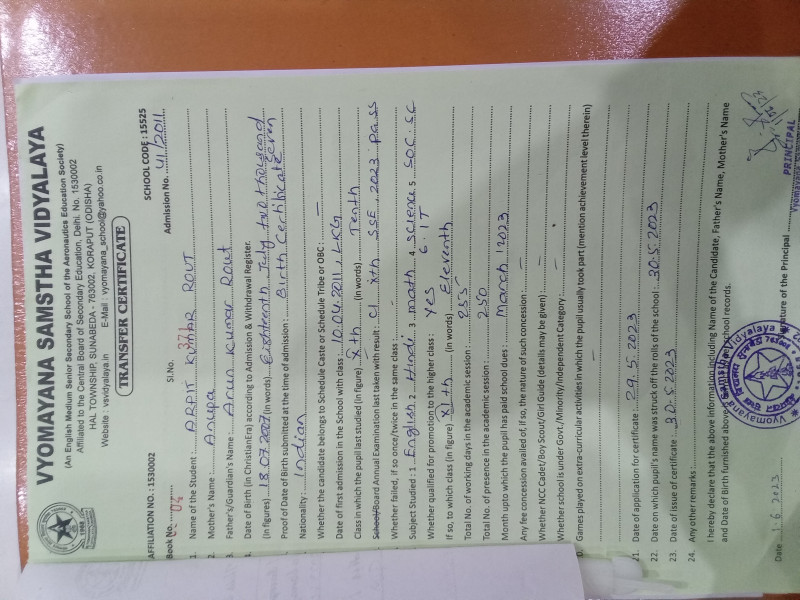 VYOMAYANA SAMSTHA VIDYALAYA
(An English Medium Senior Secondary School of the Aeronautics Education Society)
Affiliated to the Central Board of Secondary Education, Delhi. No. 1530002
HAL TOWNSHIP, SUNABEDA - 763002, KORAPUT (ODISHA)
Website : vsvidyalaya.in E-Mail : vyomayana_school@yahoo.co.in
TRANSFER CERTIFICATE
AFFILIATION NO. : 1530002 SCHOOL CODE : 15525
Book No. 04 Sl.No. 371 Admission No. 41/2011
1. Name of the Student : ARPIT KUMAR ROUT
2. Mother's Name : Anupa
3. Father's/Guardian's Name : Arun Kumar Rout
4. Date of Birth (in Christian Era) according to Admission & Withdrawal Register.
(In figures) 18.07.2007 (In words) Eighteenth July two thousand Seven
Proof of Date of Birth submitted at the time of admission : Birth Certificate
Nationality : Indian
Whether the candidate belongs to Schedule Caste or Schedule Tribe or OBC : —
Date of first admission in the School with class : 10.04.2011, LKG
Class in which the pupil last studied (In figure) Xth (In words) Tenth
School/Board Annual Examination last taken with result : Cl Xth SSE, 2023 pass
Whether failed, if so once/twice in the same class : —
Subject Studied : 1 English 2 Hindi 3 math 4 Science 5 SOC. SC 6. IT
Whether qualified for promotion to the higher class : Yes
If so, to which class (In figure) XIth (In words) Eleventh
Total No. of working days in the academic session : 255
Total No. of presence in the academic session : 250
Month upto which the pupil has paid school dues : March '2023
Any fee concession availed of, if so, the nature of such concession : —
Whether NCC Cadet/Boy Scout/Girl Guide (details may be given) : —
Whether school is under Govt./Minority/Independent Category : —
Games played on extra-curricular activities in which the pupil usually took part (mention achievement level therein)
—
21. Date of application for certificate : 29.5.2023
22. Date on which pupil's name was struck off the rolls of the school : 30.5.2023
23. Date of issue of certificate : 30.5.2023
24. Any other remarks :
I hereby declare that the above information including Name of the Candidate, Father's Name, Mother's Name
and Date of Birth furnished above school records.
Date 1.6.2023 Signature of the Principal
PRINCIPAL
Vyomayana